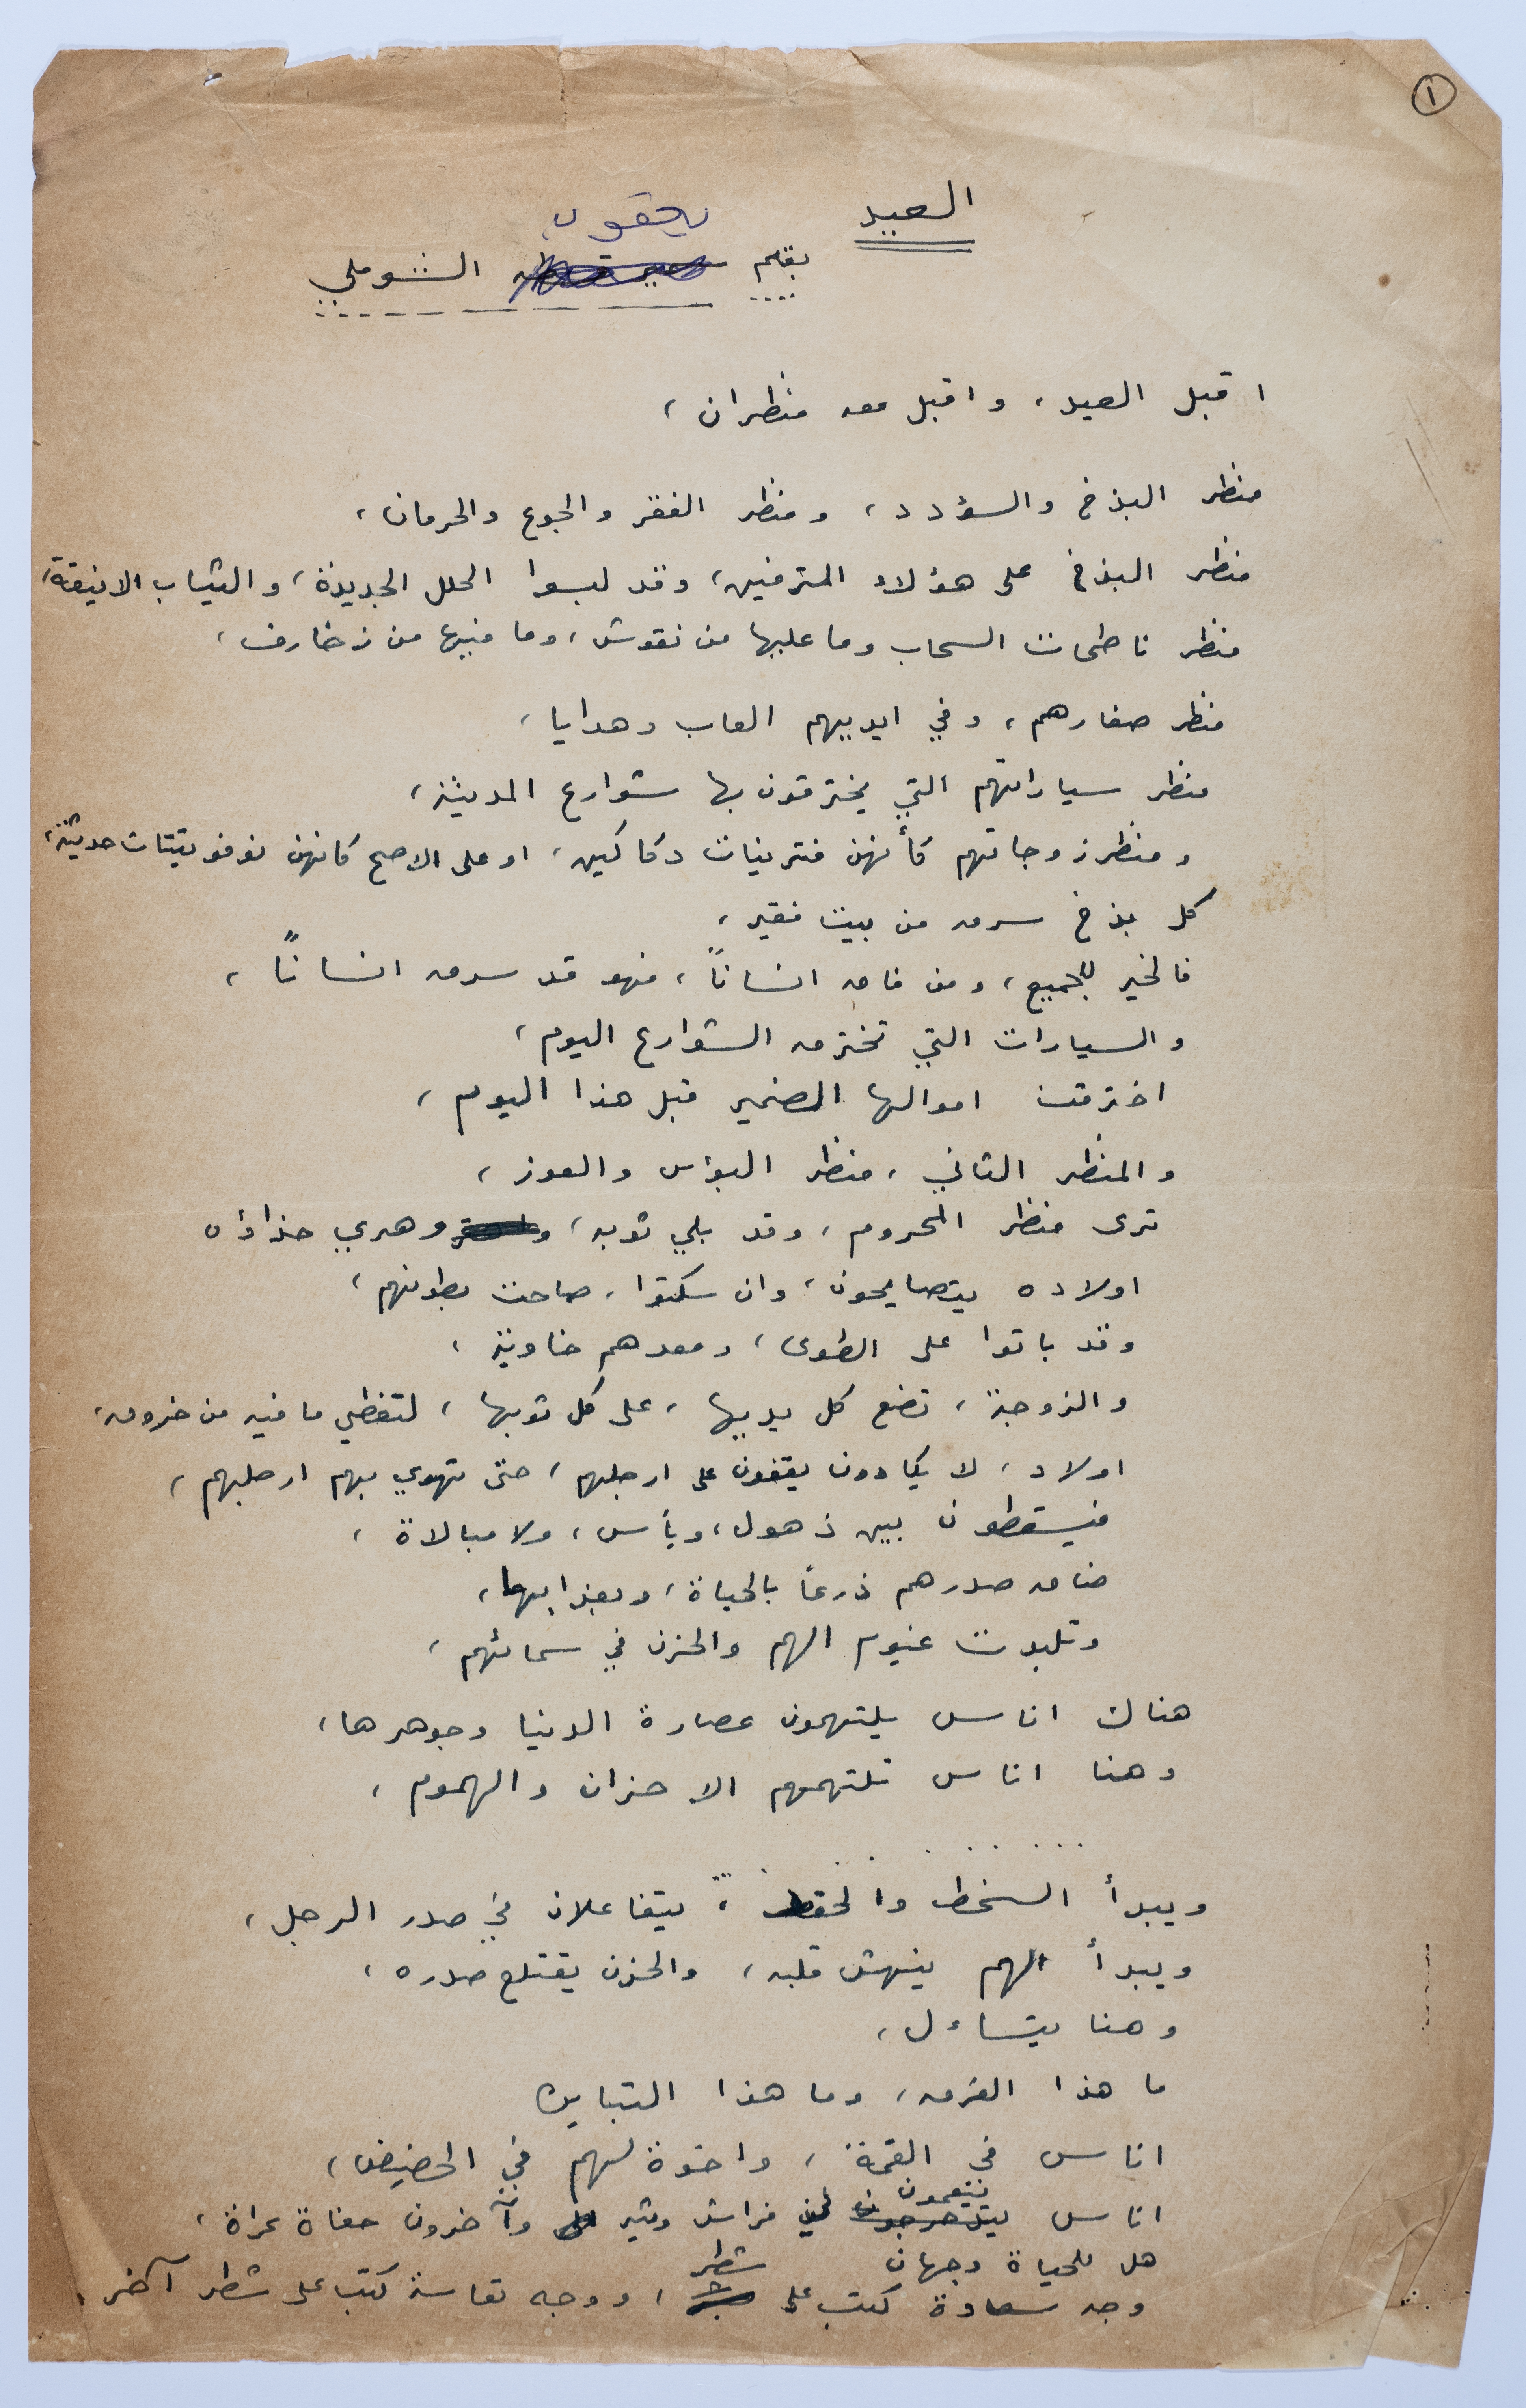 ١
العيد
يعقوب
بقلم الشوملي
اقبل العيد، واقبل معه منظران،
منظر البذخ والسؤدد، ومنظر الفقر والجوع والحرمان،
منظر البذخ على هؤلاء المترفين، وقد لبسوا الحلل الجديدة، والثياب الانيقة،
منظر ناطحات السحاب وما عليها من نقوش، وما فيها من زخارف،
منظر صغارهم، وفي ايديهم العاب وهدايا،
منظر سياراتهم التي يخترقون بها شوارع المدينة،
ومنظر زوجاتهم كأنهن فترينات دكاكين، او على الاصح كانهن نوفوتيتات حديثة،
كل بذخ سرق من بيت فقير،
فالخير للجميع، ومن فاق انساناً، فهو قد سرق انساناً،
والسيارات التي تخترق الشوارع اليوم،
اخترقت اموالها الضمير قبل هذا اليوم،
والمنظر الثاني، منظر البؤس والعوز،
ترى منظر المحروم، وقد بلي ثوبه، وهري حذاؤه
اولاده يتصايحون، وان سكتوا، صاحت بطونهم،
وقد باتوا على الطوى، ومعدهم خاوية،
والزوجة، تضع كل يديها، على كل ثوبها، لتغطي ما فيه من خروق،
اولاد، لا يكادون يقفون على ارجلهم، حتى تهوي بهم ارجلهم،
فيسقطون بين ذهول، ويأس، ولا مبالاة،
ضاق صدرهم ذرعاً بالحياة، وبعذابها،
وتلبدت غيوم الهم والحزن في سمائهم،
هناك اناس يلتهمون عصارة الدنيا وجوهرها،
وهنا اناس تلتهمهم الاحزان والهموم،
. . . . . . .
ويبدأ السخط والحقد، يتفاعلان في صدر الرجل،
ويبدأ الهم ينهش قلبه، والحزن يقتلع صدره،
وهنا يتساءل،
ما هذا الفرق، وما هذا التباين
اناس في القمة، واخوة لهم في الحضيض،
يتنعمون
اناس في فراش وثير وآخرون حفاة عراة،
هل للحياة وجهان
شطر
وجه سعادة كتب على، ووجه تعاسة كتب على شطر آخر.